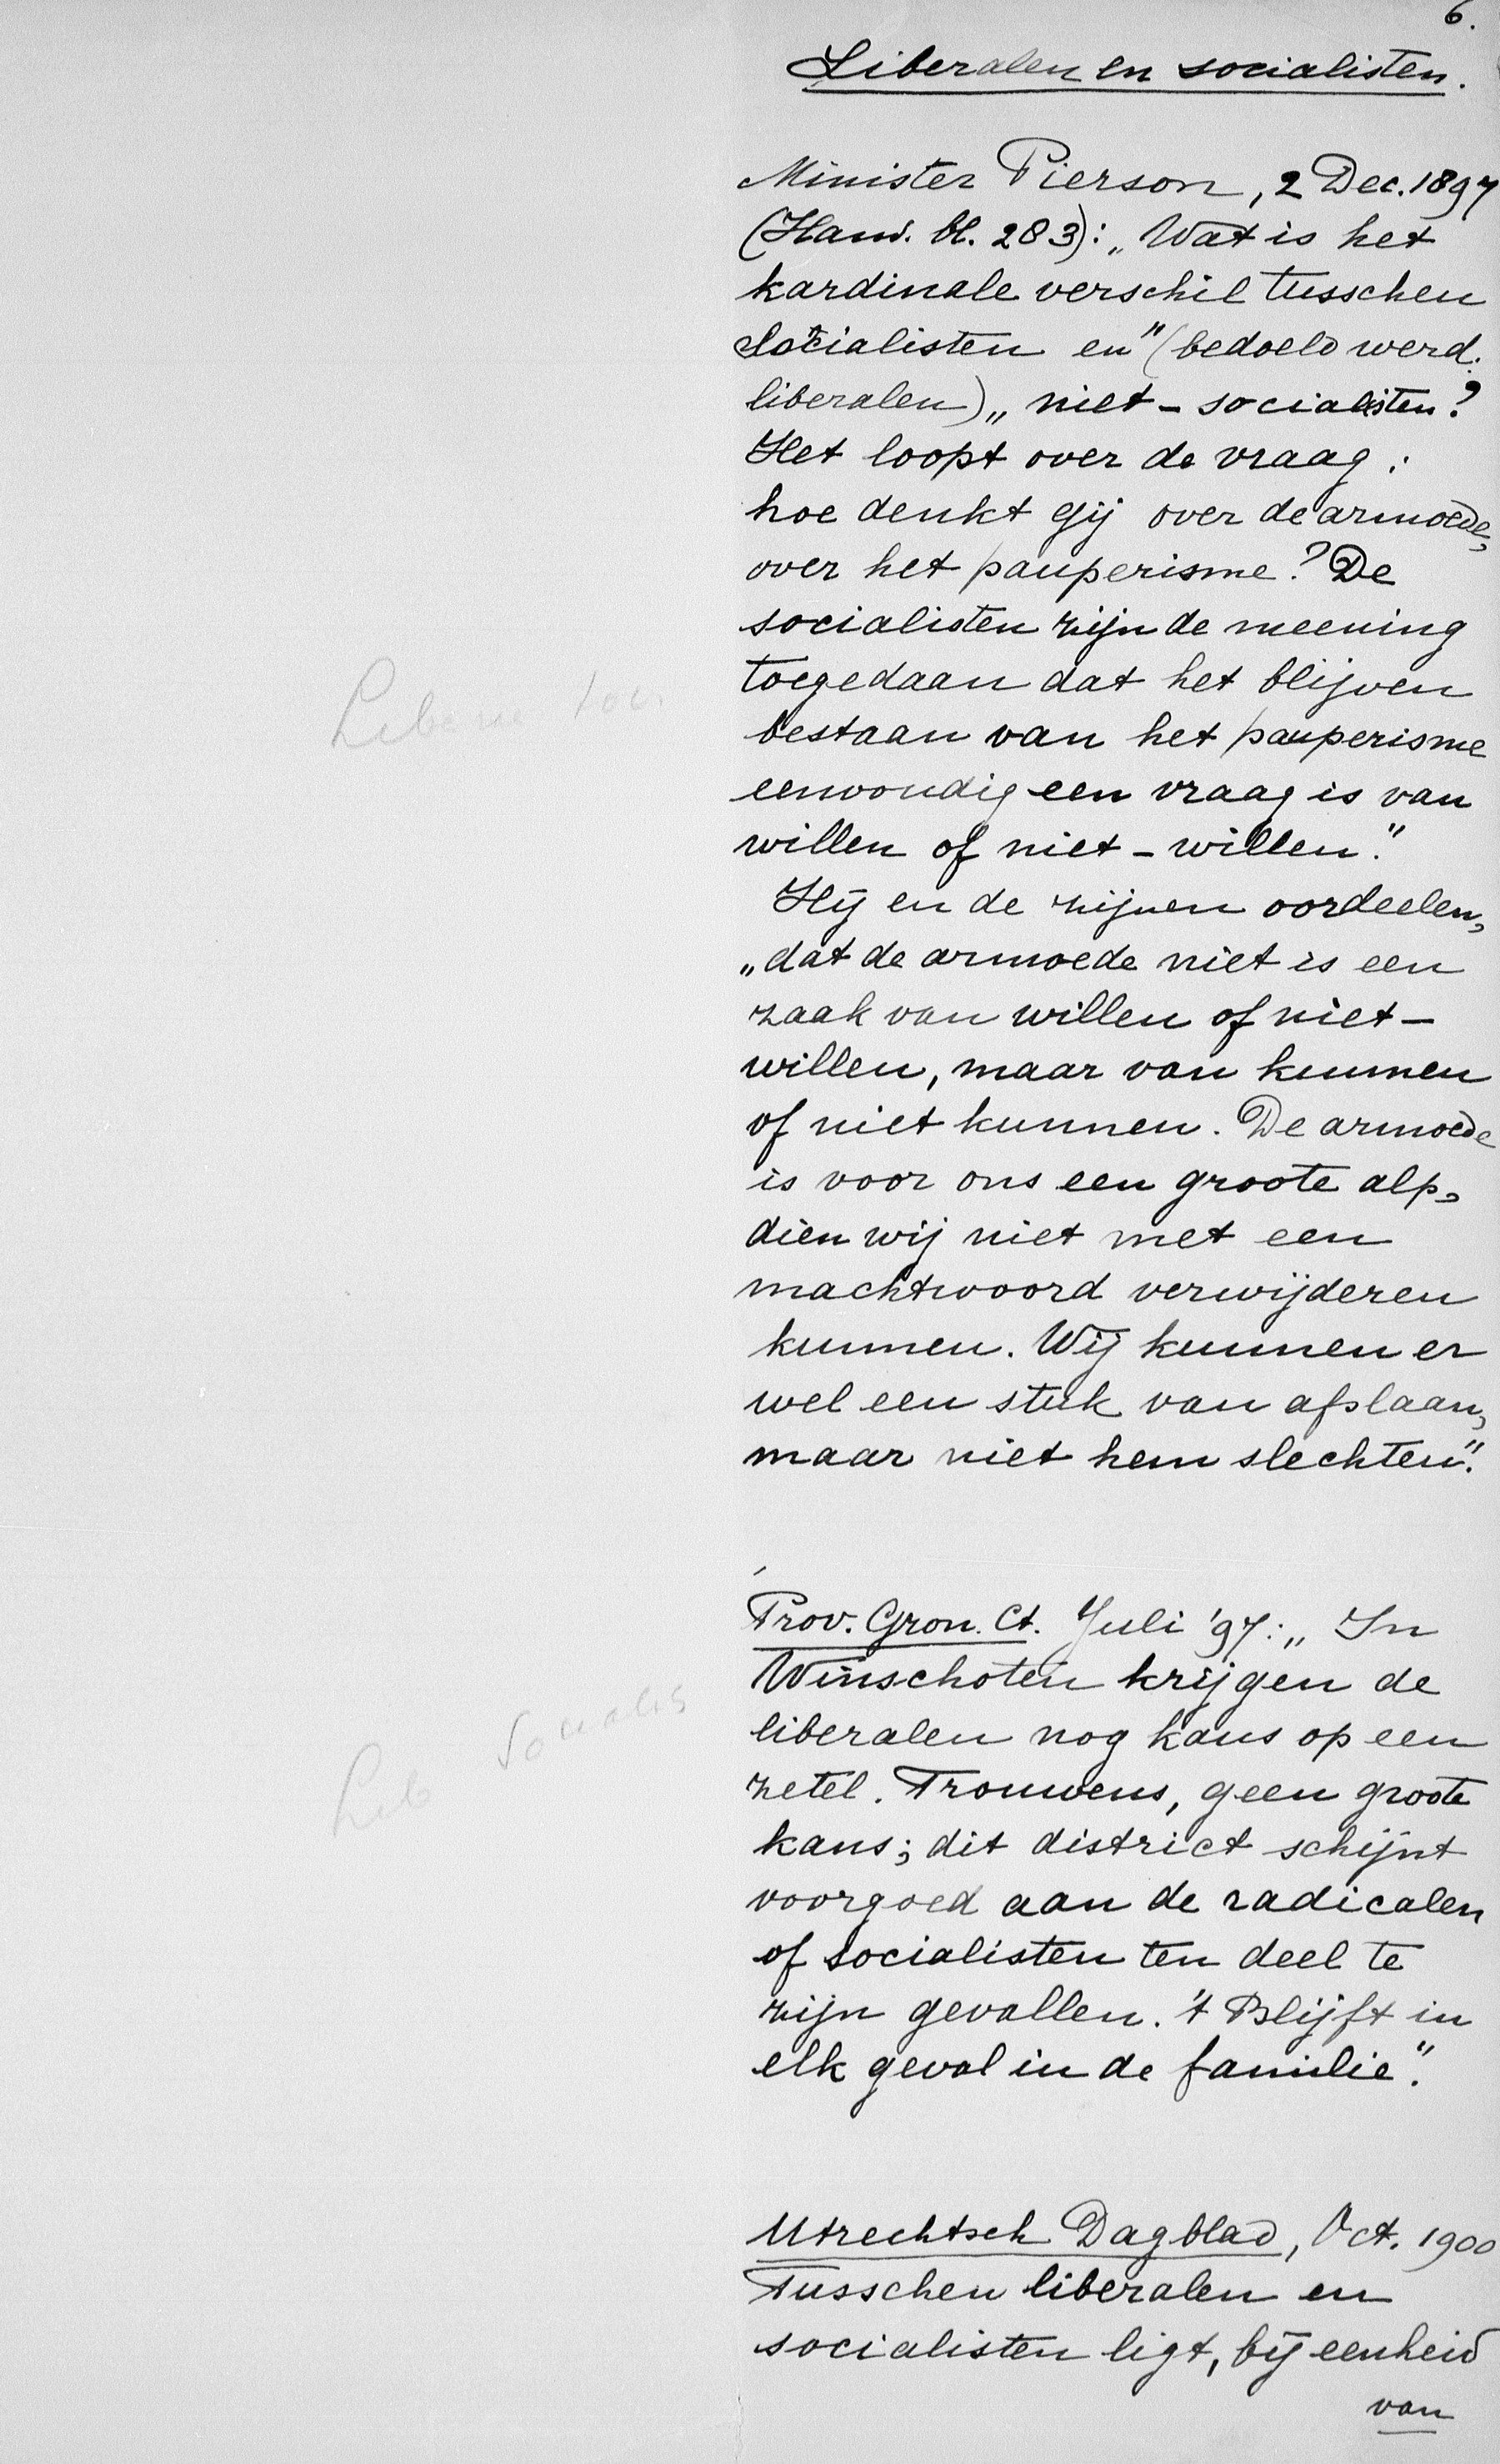 6.
Liberalen en socialisten.
Minister Pierson, 2 Dec. 1897
(Hand. bl. 283): „Wat is het
kardinale verschil tusschen
Socialisten en" (bedoeld werd:
liberalen) „niet-socialisten?
Het loopt over de vraag:
hoe denkt gij over de armoede,
over het pauperisme? De
socialisten zijn de meening
toegedaan dat het blijven
bestaan van het pauperisme
eenvoudig een vraag is van
willen of niet-willen."
Hij en de zijnen oordeelen,
„dat de armoede niet is een
zaak van willen of niet-
willen, maar van kunnen
of niet kunnen. De armoede
is voor ons een groote alp,
dien wij niet met een
machtwoord verwijderen
kunnen. Wij kunnen er
wel een stuk van afslaan,
maar niet hem slechten".
Prov. Gron. Ct. Juli '97: „In
Winschoten krijgen de
liberalen nog kans op een
zetel. Trouwens, geen groote
kans; dit district schijnt
voorgoed aan de radicalen
of socialisten ten deel te
zijn gevallen. 't Blijft in
elk geval in de familie".
Lib Socialis
Utrechtsch Dagblad, Oct. 1900
Tusschen liberalen en
socialisten ligt, bij eenheid
van